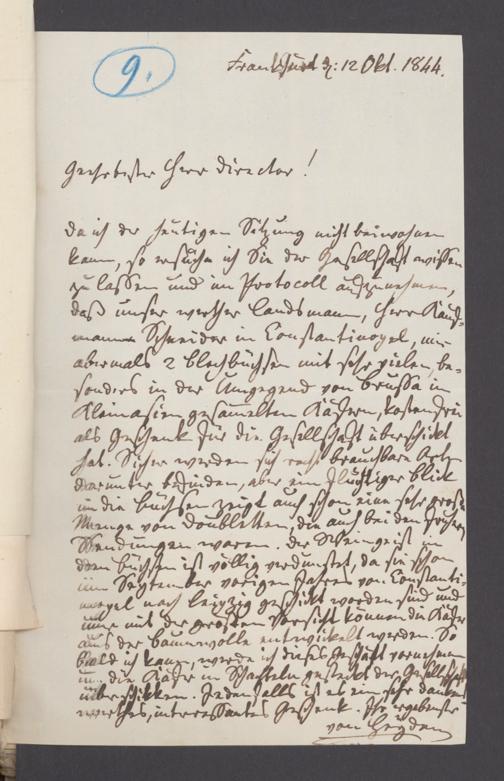 9.
Frankfurt 12 Okt. 1844.
Geehrtester Herr Director!
Da ich der heutigen Sitzung nicht beiwohnen
kann, so ersuche ich Sie der Gesellschaft wissen
zu lassen und im Protocoll aufzunehmen,
daß unser werther Landsmann, Herr Kauf-
mann Schneider in Constantinopel, mir
abermals 2 Blechbüchsen mit sehr vielen, be-
sonders in der Umgegend von Brussa in
Kleinasien gesammelten Käfern, kostenfrei
als Geschenk für die Gesellschaft überschickt
hat. Sicher werden sich recht brauchbare Arten
darunter befinden, aber ein flüchtiger Blick
in die Büchsen zeigt auch schon eine sehr große
Menge von Doubletten, die auch bei den frühern
Sendungen waren. Der Weingeist in
den Büchsen ist völlig verdunstet, da sie schon
im September vorigen Jahres von Constanti-
nopel nach Leipzig geschickt worden sind und
nur mit der großten Vorsicht können die Käfer
aus der Baumwolle entwickelt werden. So
bald ich kann, werde ich dieses Geschäft vornehmen
u. die Käfer in Schachteln gesteckt der Gesellschaft
überschicken. Jedenfalls ist es ein sehr dankens-
werthes, interessantes Geschenk. Ihr ergebenster
von Heyden